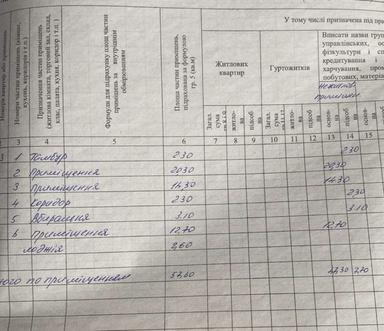 У тому числі призначена під пр
Номери частин приміщень (кімнат, кухонь, коридорів і т.п.)
Призначення частин приміщень (житлова кімната, торговий зал, склад, клас, палата, кухня, коридор і т.п.)
Формули для підрахунку площ частин приміщень за внутрішнім обмірюванням
Площа частини приміщень, підрахована за формулою гр. 5 (кв.м)
Житлових квартир
Гуртожитків
Вписати назви груп
управлінських, ос
фізкультури і сп
кредитування і
харчування, пром
побутових, матеріа
Нежитлові
приміщення
Загал. сума
житло-ва
підсоб-ва
Загал. сума
житло-ва
підсоб-ва
основ-на
підсоб-на
основ-на
3 4 5 6 7 8 9 10 11 12 13 14 15
1 Тамбур 2.30 2.30
2 Приміщення 20.30 20.30
3 Приміщення 14.30 14.30
4 Коридор 2.30 2.30
5 Вбиральня 3.10 3.10
6 Приміщення 12.70 12.70
лоджія 2,60
ього по приміщенням